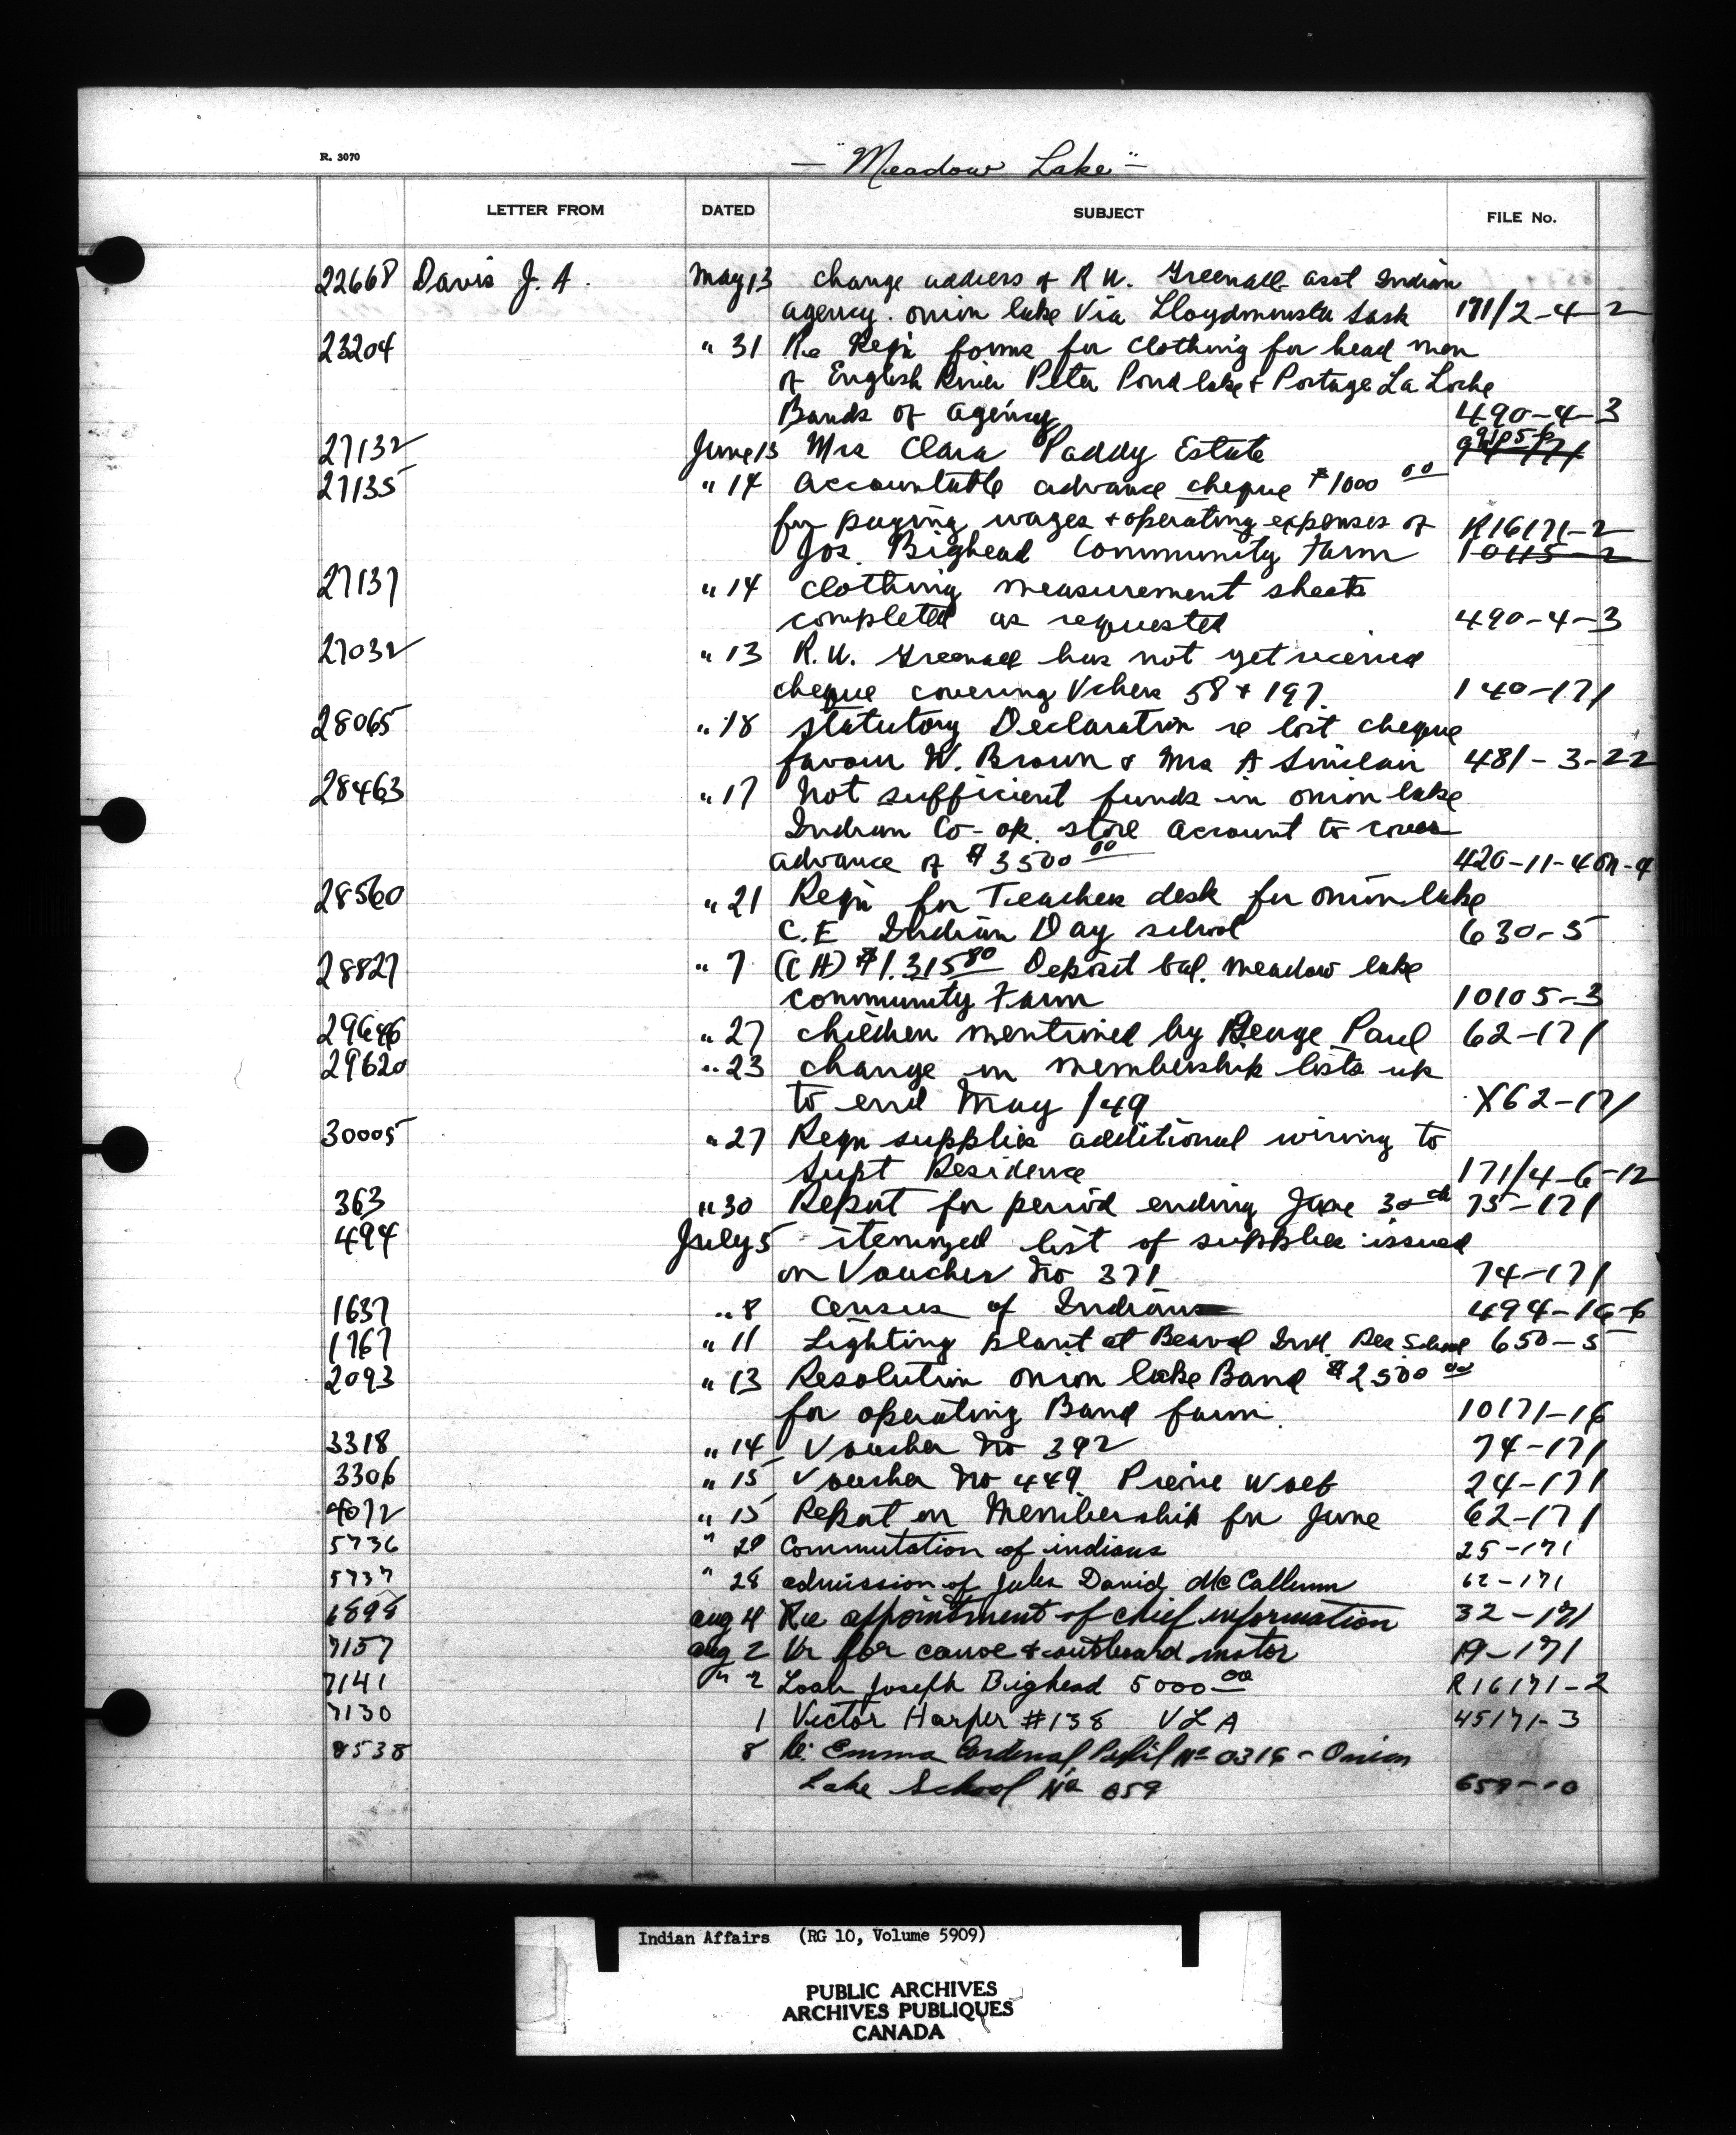 R. 3070
— "Meadow Lake" —
LETTER FROM DATED SUBJECT FILE No.
22668 Davis J. A. May 13 change address of R U. Greenall asst Indian
agency. onion lake Via Lloydminster Sask 171/2-4-2
23204 " 31 Re Reqn forms for clothing for head men
of English River Peter Pond lake & Portage La Loche
Bands of agency 490-4-3
27132 June 13 Mrs Clara Paddy Estate
27135 " 14 Accountable advance cheque $1000 00
for paying wages & operating expenses of R16171-2
Jos. Bighead Community Farm 10115-2
27137 " 14 clothing measurement sheets
completed as requested 490-4-3
27032 " 13 R.U. Greenall has not yet received
cheque covering Vchers 58 & 197. 140-171
28065 " 18 Statutory Declaration re lost cheque
favour W. Brown & Mrs A Sinclair 481-3-22
28463 " 17 Not sufficient funds in onion lake
Indian Co-op. store Account to cover
advance of $3500 00 420-11-4
28560 " 21 Reqn for Teachers desk for onion lake
C.E Indian Day school 630-5
28827 " 7 (C H) $1.315 80 Deposit bal. Meadow lake
community Farm 10105-3
29646 " 27 children mentioned by George Paul 62-171
29620 " 23 change in membership lists up
to end May /49 X62-171
30005 " 27 Reqn supplies additional wiring to
Supt Residence 171/4-6-12
363 " 30 Report for period ending June 30th 75-171
494 July 5 itemized list of supplies issued
on Voucher No 371 74-171
1637 " 8 Census of Indians 494-16-6
1767 " 11 Lighting plant at Beauval Ind. Res School 650-5
2093 " 13 Resolution onion lake Band $2500 00
for operating Band farm. 10171-16
3318 " 14 Voucher No 392 74-171
3306 " 15 Voucher No 449 Pierre Wolf 24-171
4072 " 15 Report on Membership for June 62-171
5736 " 29 Commutation of indians 25-171
5737 " 28 admission of Jules David McCallum 62-171
6898 aug 4 Re appointment of chief information 32-171
7157 aug 2 Vr for canoe & outboard motor 19-171
7141 " 2 Loan Joseph Bighead 5000 00 R16171-2
7130 1 Victor Harper #138 V L A 45171-3
8538 8 Re: Emma Cardinal Pupil No 0316 - Onion
Lake School No 659 659-10
Indian Affairs (RG 10, Volume 5909)
PUBLIC ARCHIVES
ARCHIVES PUBLIQUES
CANADA